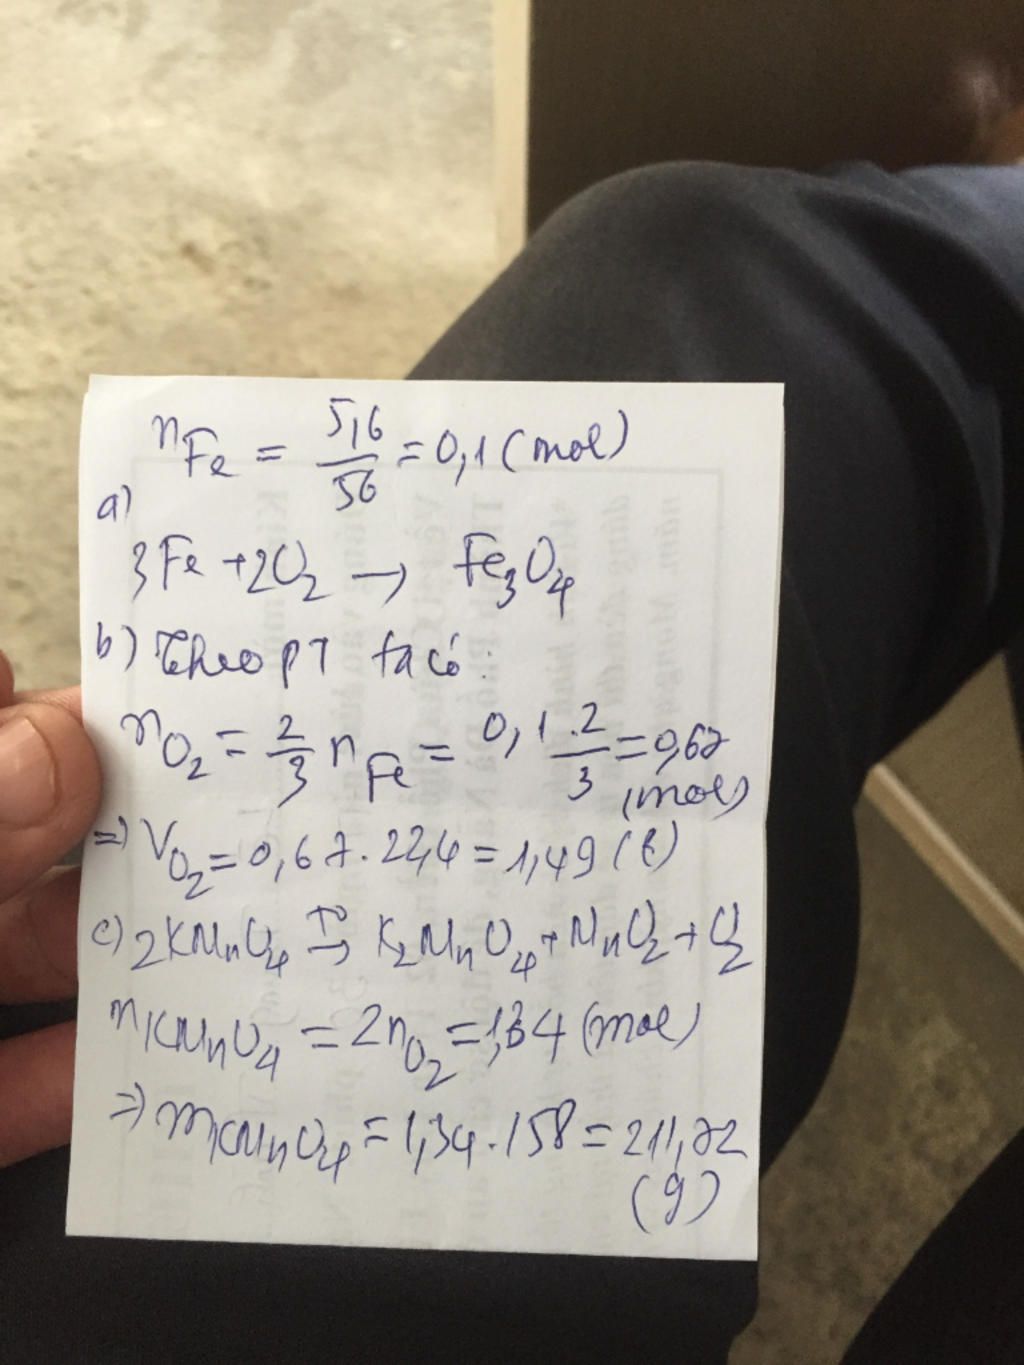 nFe = 5,6/56 = 0,1 (mol)
a)
3Fe + 2O2 → Fe3O4
b) Theo pT ta có:
nO2 = 2/3 nFe = 0,1.2/3 = 0,67 (mol)
=> VO2 = 0,67.22,4 = 1,49 (l)
c) 2KMnO4 t° → K2MnO4 + MnO2 + O2
nKMnO4 = 2nO2 = 1,34 (mol)
=> mKMnO4 = 1,34.158 = 211,72 (g)